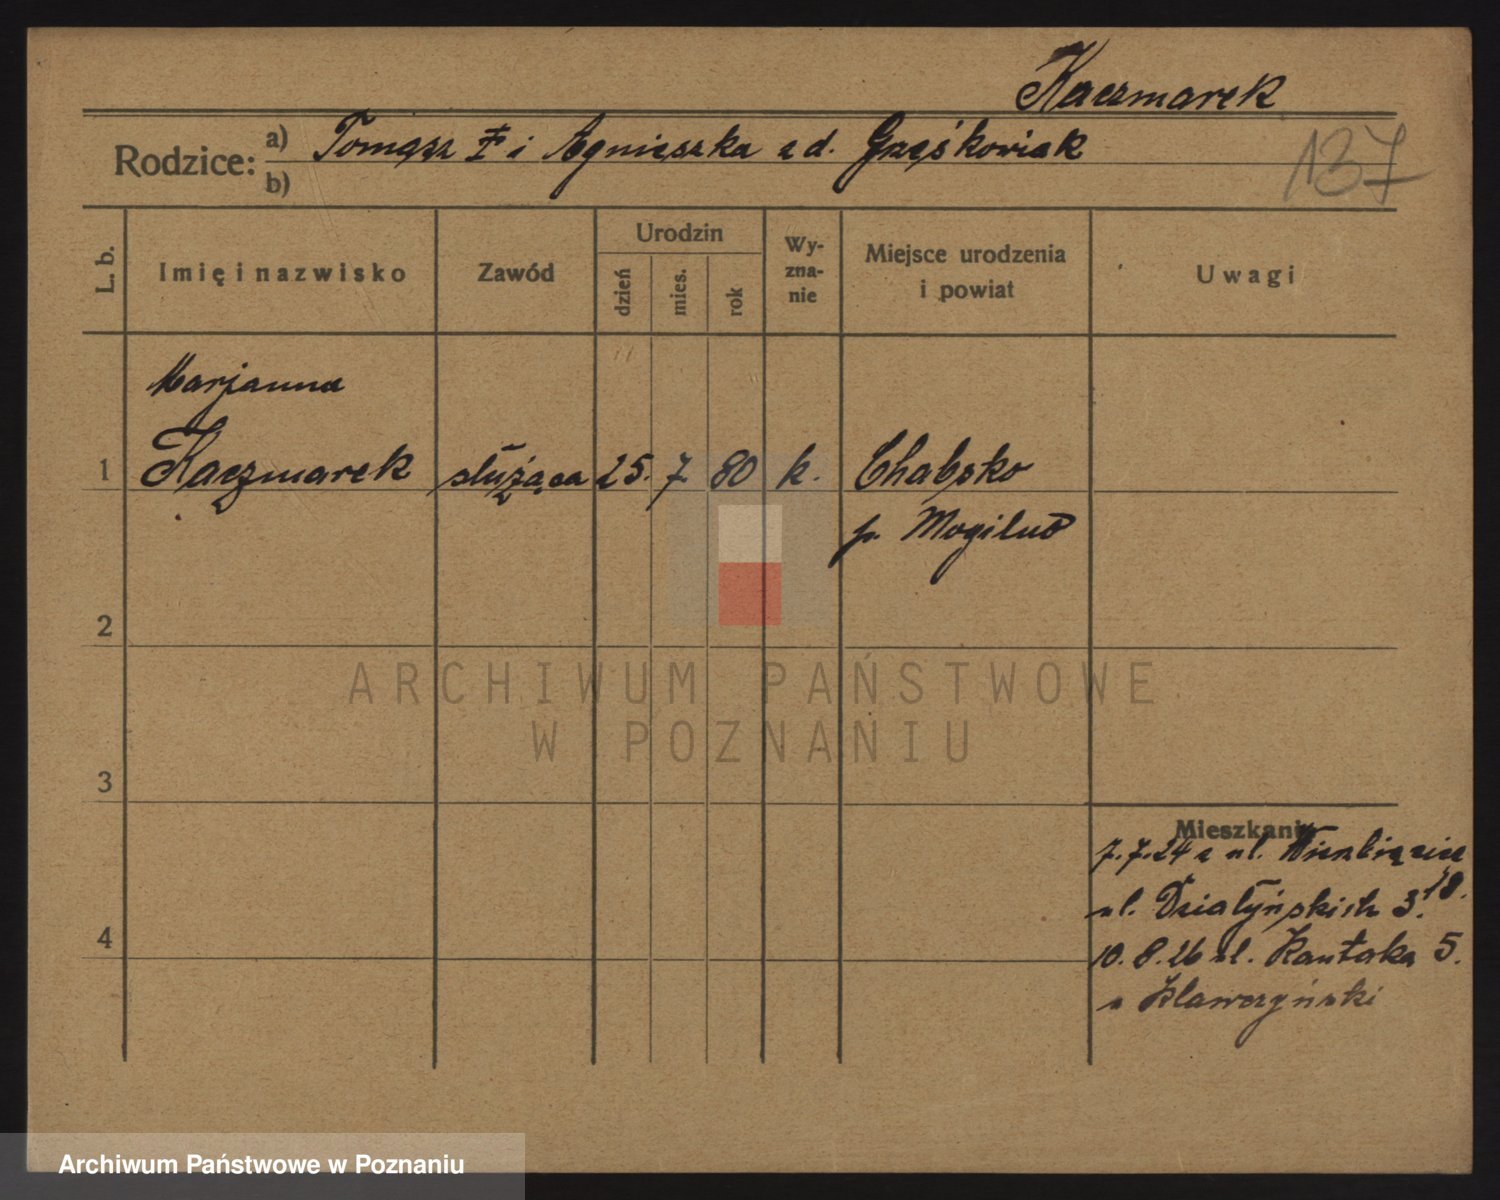 Kaczmarek
Rodzice: a) Tomasz ‡ i Agnieszka z d. Grześkowiak
b)
137
L. b.
Imię i nazwisko
Zawód
Urodzin
dzień
mies.
rok
Wy-
zna-
nie
Miejsce urodzenia
i powiat
Uwagi
Marjanna
1 Kaczmarek służąca 25. 7. 80 k. Chabsko
p. Mogilno
2
3
4
Mieszkanie
7.7.24 z ul. Wierzbięcice
18.
ul. Działyńskich 3.
10.8.26 ul. Kantaka 5.
u Klawczyński
ARCHIWUM PAŃSTWOWE
W POZNANIU
Archiwum Państwowe w Poznaniu